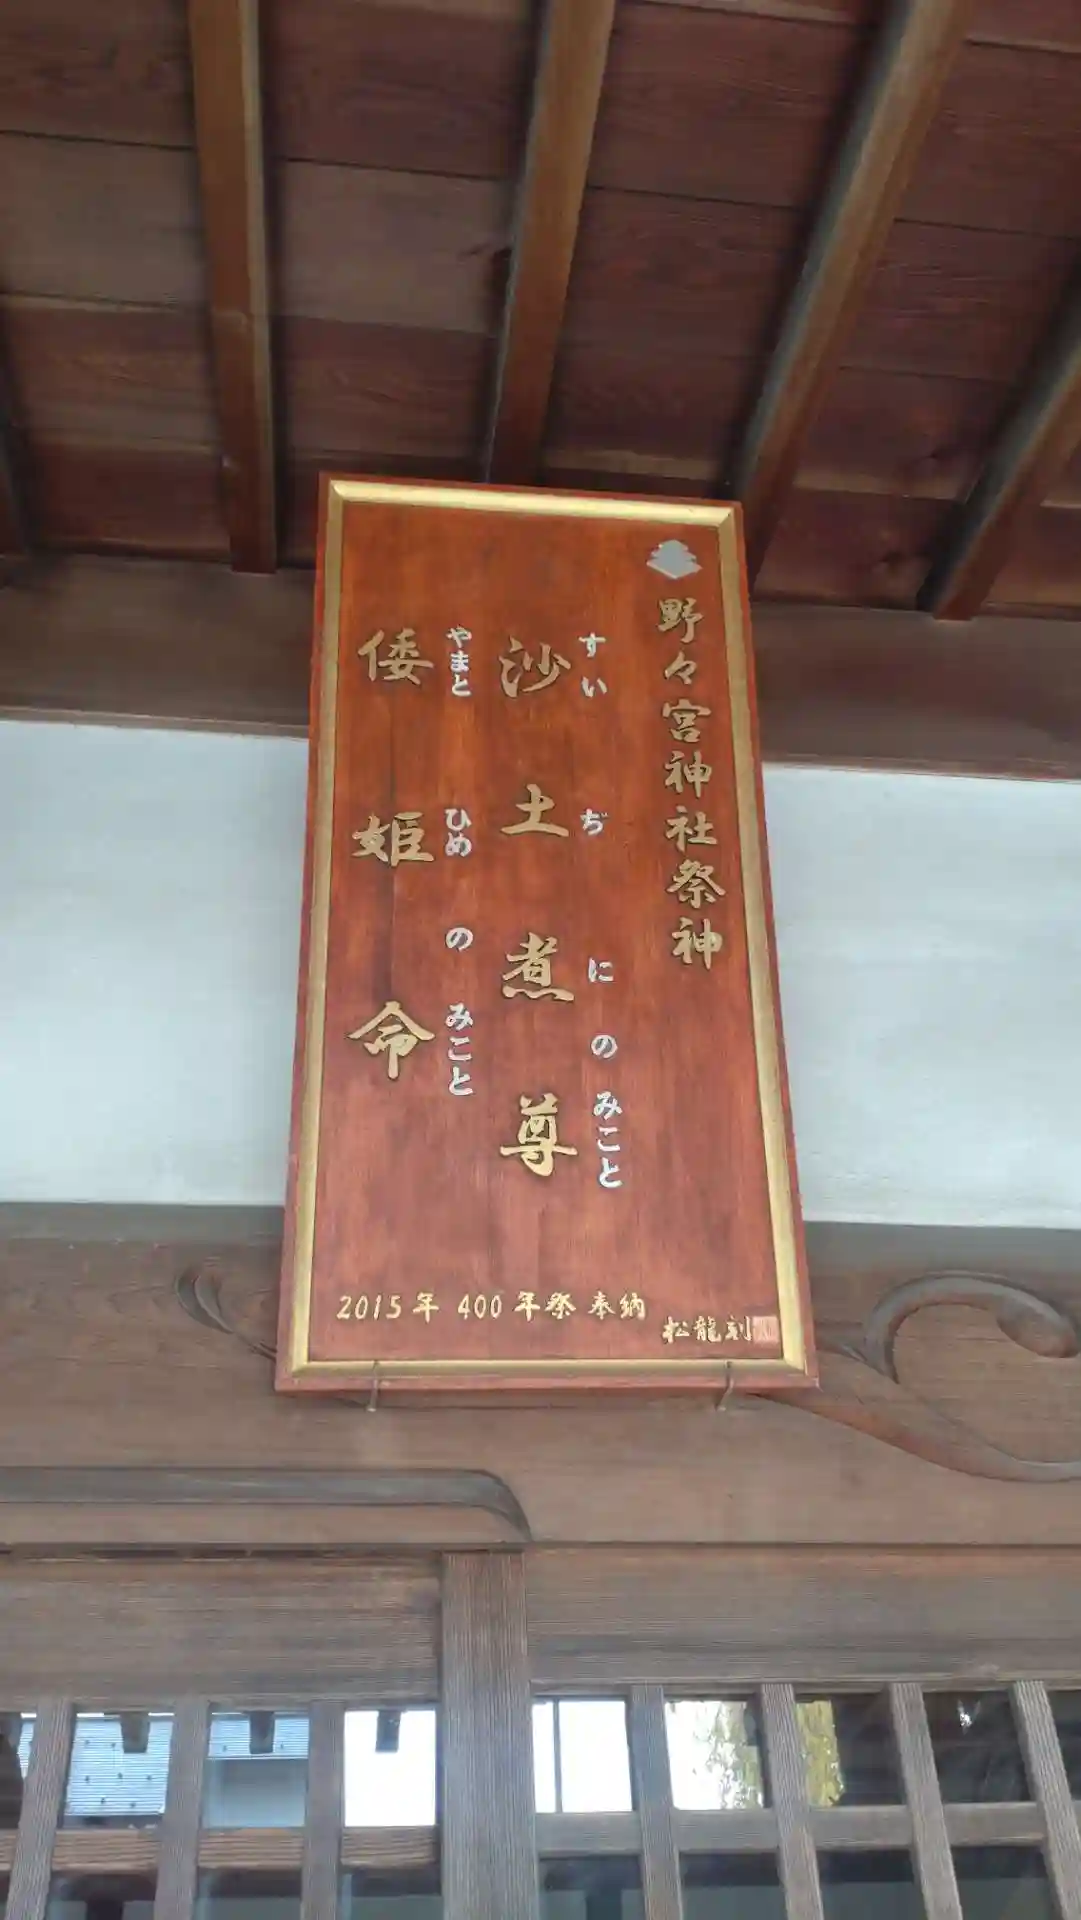 野々宮神社祭神
すいぢにのみこと
沙土煮尊
やまとひめのみこと
倭姫命
2015年 400年祭 奉納
松龍刻